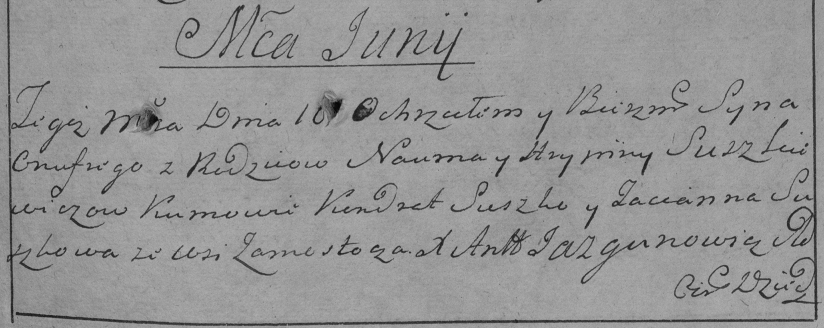 Mča Junij
Tegoż Mča Dnia 10 Ochrzciłem y Bierzm Syna
Onufrego z Rodzicow Nauma y Hrypiny Suszkie
wiczow Kumowie Kondrat Suszko y Tacianna Su
szkowa ze wsi Zamostocza X Antt Jazgunowicz